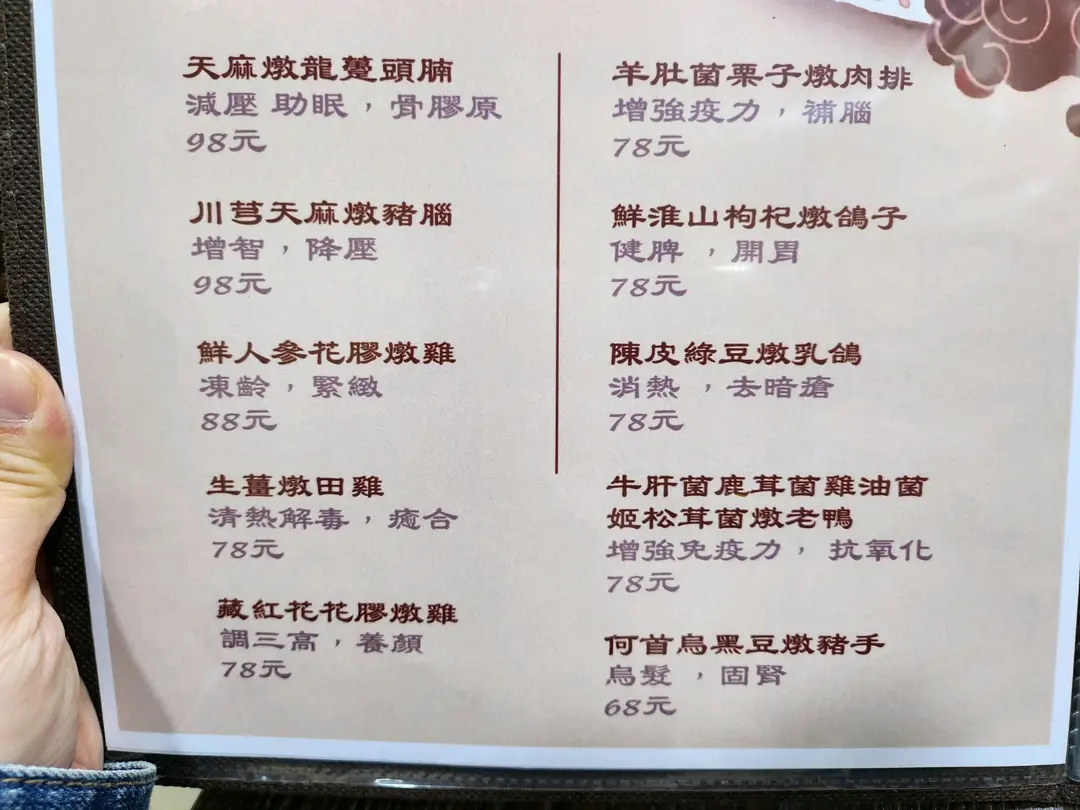 天麻燉龍躉頭腩
減壓 助眠，骨膠原
98元
川芎天麻燉豬腦
增智，降壓
98元
鮮人參花膠燉雞
凍齡，緊緻
88元
生薑燉田雞
清熱解毒，癒合
78元
藏紅花花膠燉雞
調三高，養顏
78元
羊肚菌栗子燉肉排
增強疫力，補腦
78元
鮮淮山枸杞燉鴿子
健脾，開胃
78元
陳皮綠豆燉乳鴿
消熱，去暗瘡
78元
牛肝菌鹿茸菌雞油菌
姬松茸菌燉老鴨
增強免疫力，抗氧化
78元
何首烏黑豆燉豬手
烏髮，固腎
68元